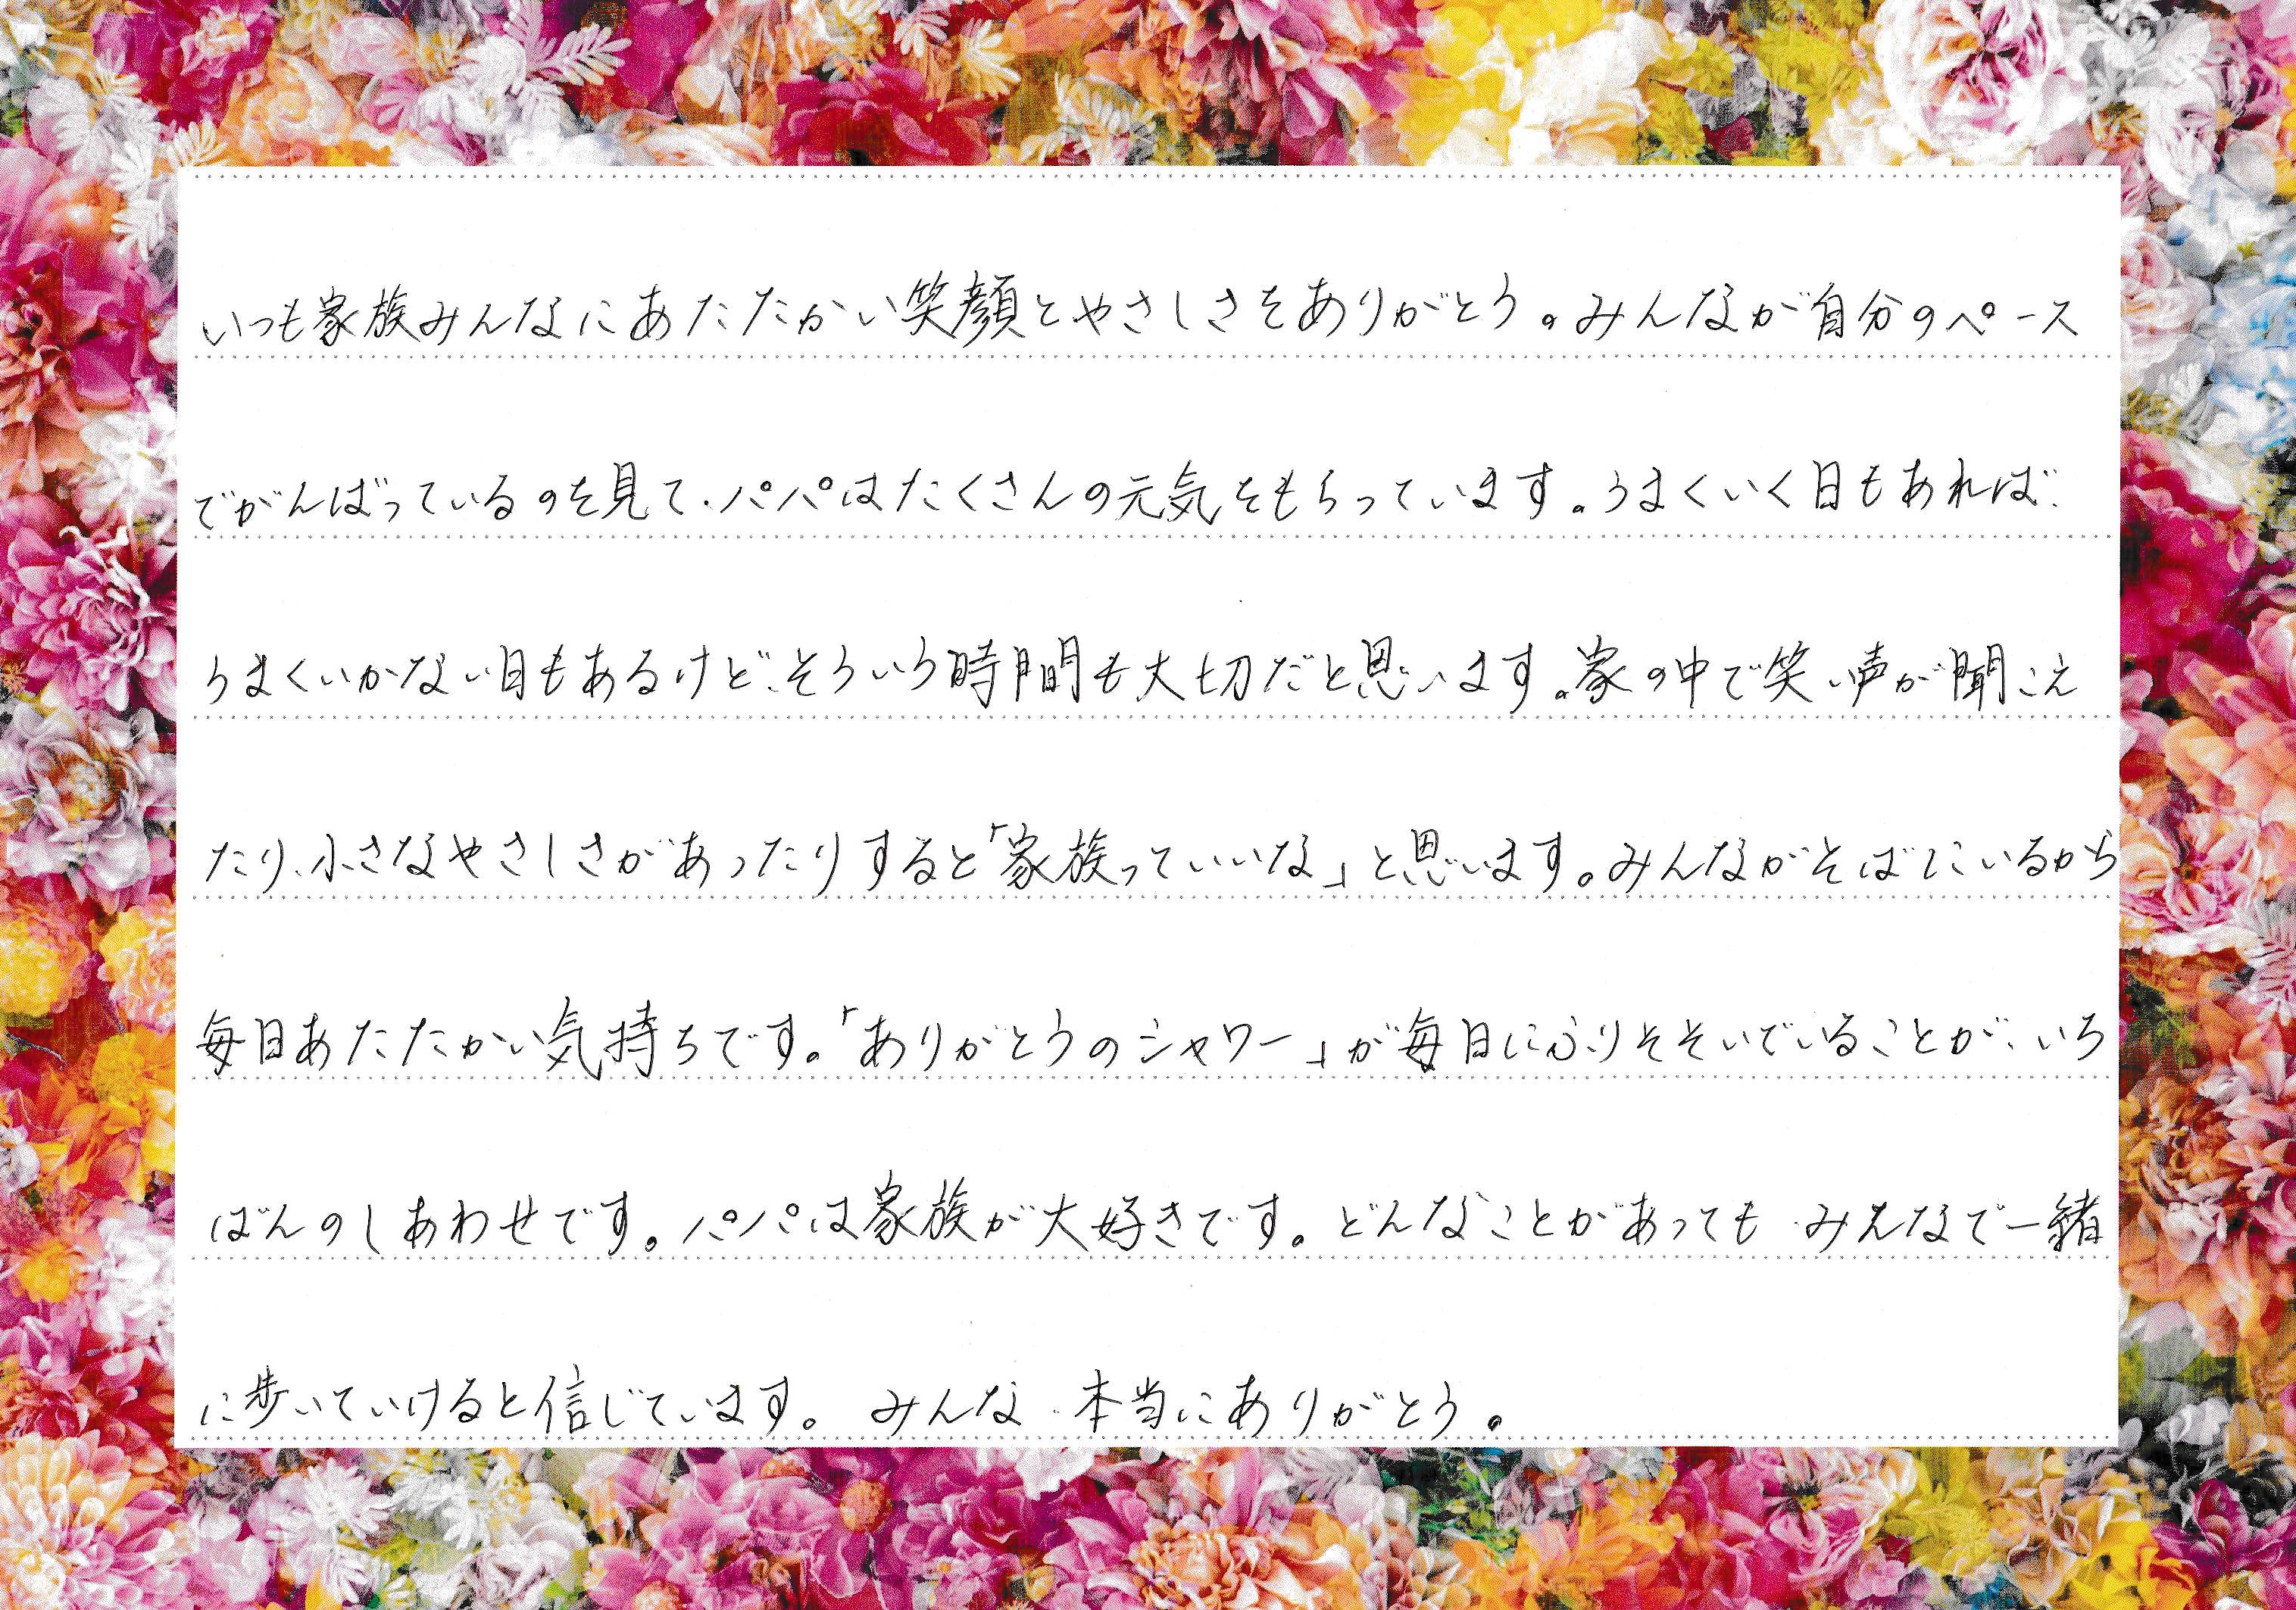 いつも家族みんなにあたたかい笑顔とやさしさをありがとう。みんなが自分のペース
でがんばっているのを見て、パパはたくさんの元気をもらっています。うまくいく日もあれば、
うまくいかない日もあるけど、そういう時間も大切だと思います。家の中で笑い声が聞こえ
たり、小さなやさしさがあったりすると「家族っていいな」と思います。みんながそばにいるから
毎日あたたかい気持ちです。「ありがとうのシャワー」が毎日にふりそそいでいることが、いち
ばんのしあわせです。パパは家族が大好きです。どんなことがあっても、みんなで一緒
に歩いていけると信じています。みんな、本当にありがとう。